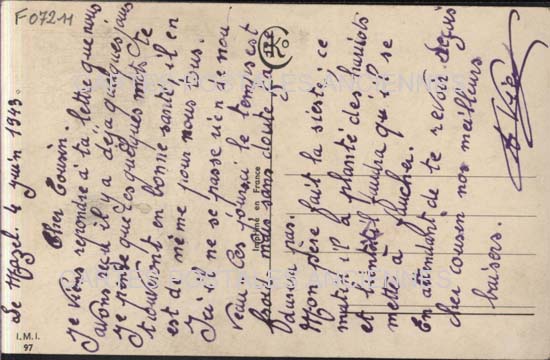 F072H
Le Mozel. 4 juin 1943.
Cher Cousin.
Je viens repondre à ta lettre que nous
avons reçu il y a déjà quelques jours
Je pense que ces quelques mots te
trouveront en bonne santé, il en
est de même pour nous tous.
Ici il ne se passe rien de nou
veau Ces jours ci le temps est
frais mais sans doute ça ne
durera pas.
Mon père fait la sieste ce
matin il a planté des haricots
et bientôt faudra qu'il se
mette à faucher.
En attendant de te revoir. Reçois
cher cousin nos meilleurs
baisers.
Imprimé en France
I.M.I.
97
CARTES POSTALES ANCIENNES
CARTES POSTALES ANCIENNES